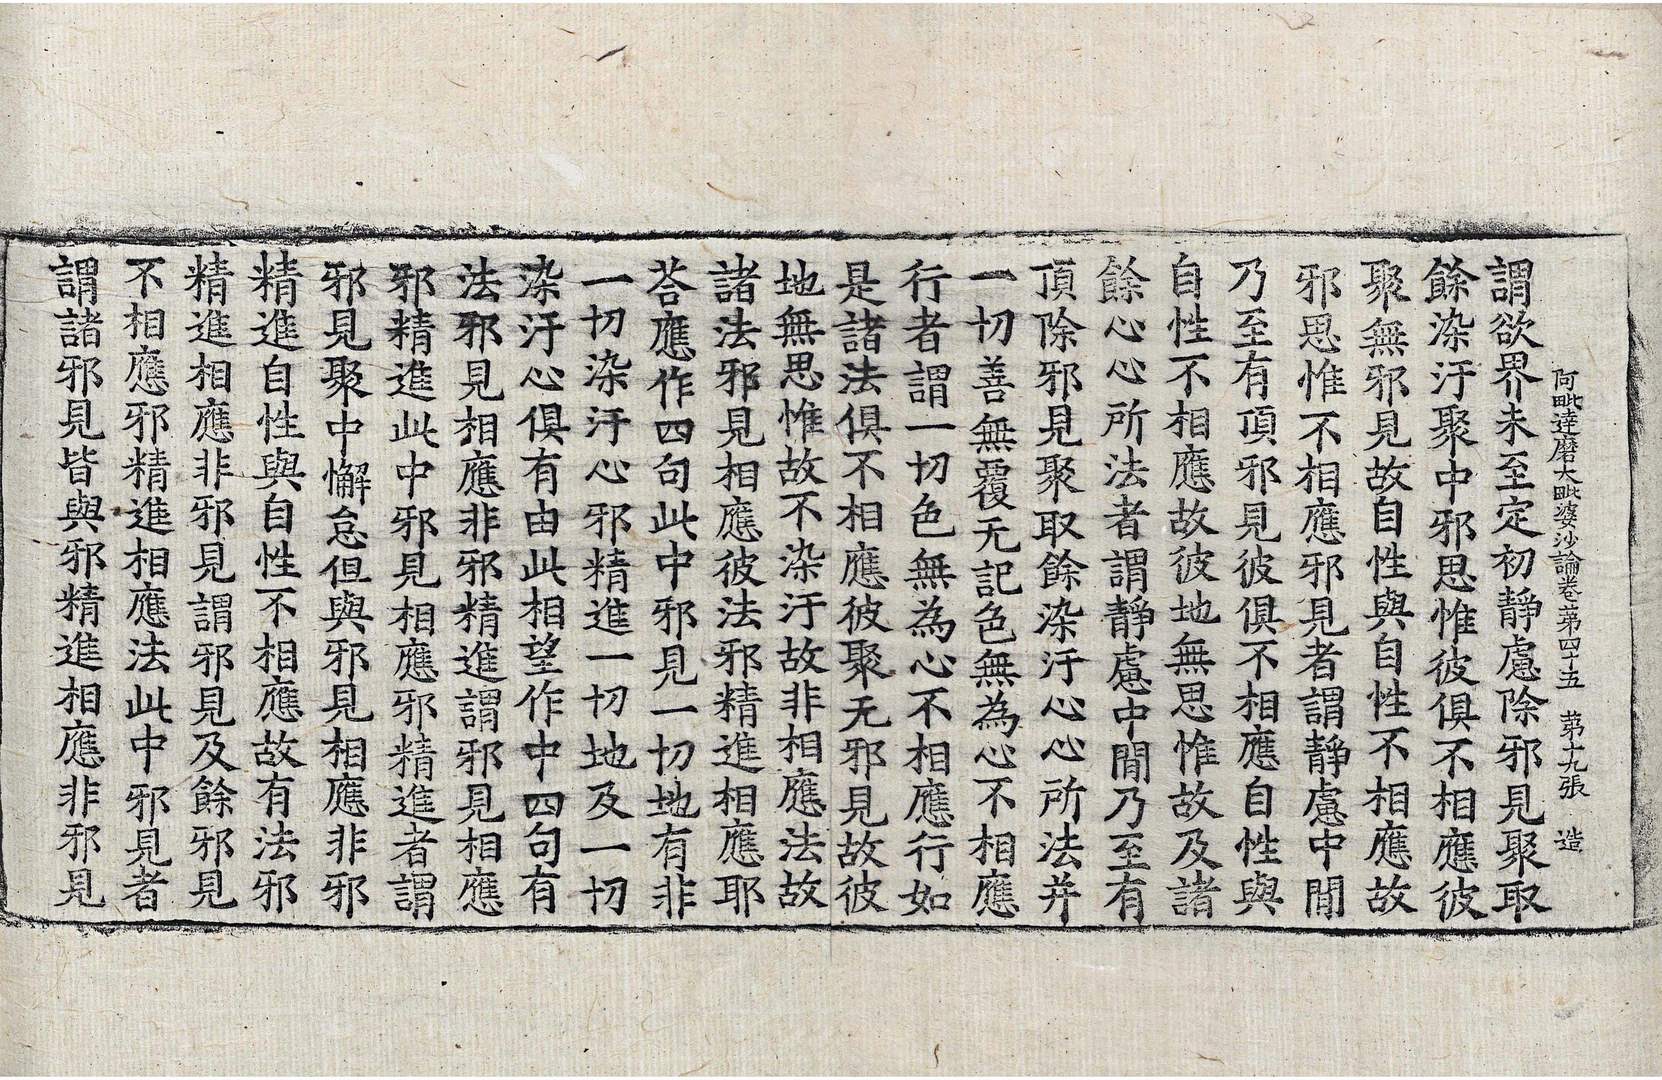 阿毗達磨大毗婆沙論卷第四十五 第十九張 造
謂欲界未至定初靜慮除邪見聚取
餘染汙聚中邪思惟彼俱不相應彼
聚無邪見故自性與自性不相應故
邪思惟不相應邪見者謂靜慮中間
乃至有頂邪見彼俱不相應自性與
自性不相應故彼地無思惟故及諸
餘心心所法者謂靜慮中間乃至有
頂除邪見聚取餘染汙心心所法并
一切善無覆无記色無為心不相應
行者謂一切色無為心不相應行如
是諸法俱不相應彼聚无邪見故彼
地無思惟故不染汙故非相應法故
諸法邪見相應彼法邪精進相應耶
荅應作四句此中邪見一切地有非
一切染汙心邪精進一切地及一切
染汙心俱有由此相望作中四句有
法邪見相應非邪精進謂邪見相應
邪精進此中邪見相應邪精進者謂
邪見聚中懈怠但與邪見相應非邪
精進自性與自性不相應故有法邪
精進相應非邪見謂邪見及餘邪見
不相應邪精進相應法此中邪見者
謂諸邪見皆與邪精進相應非邪見